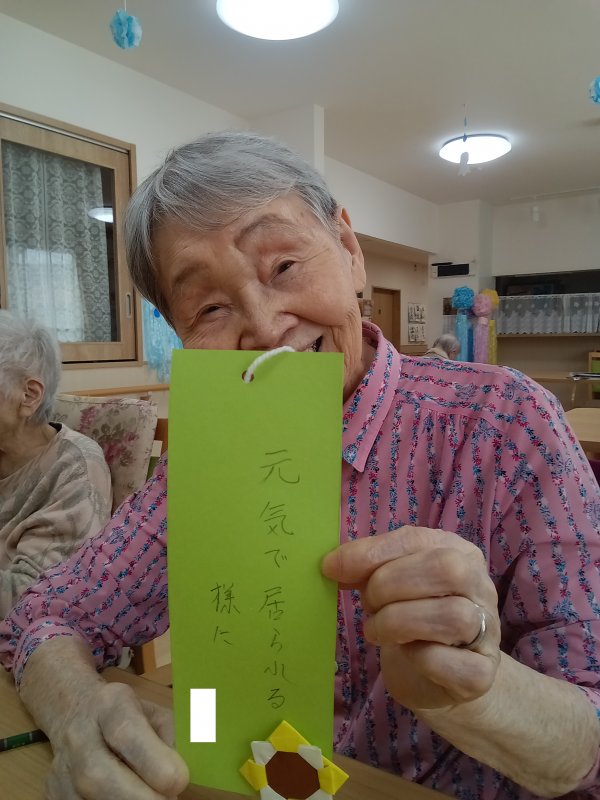 元気で居られる
様に